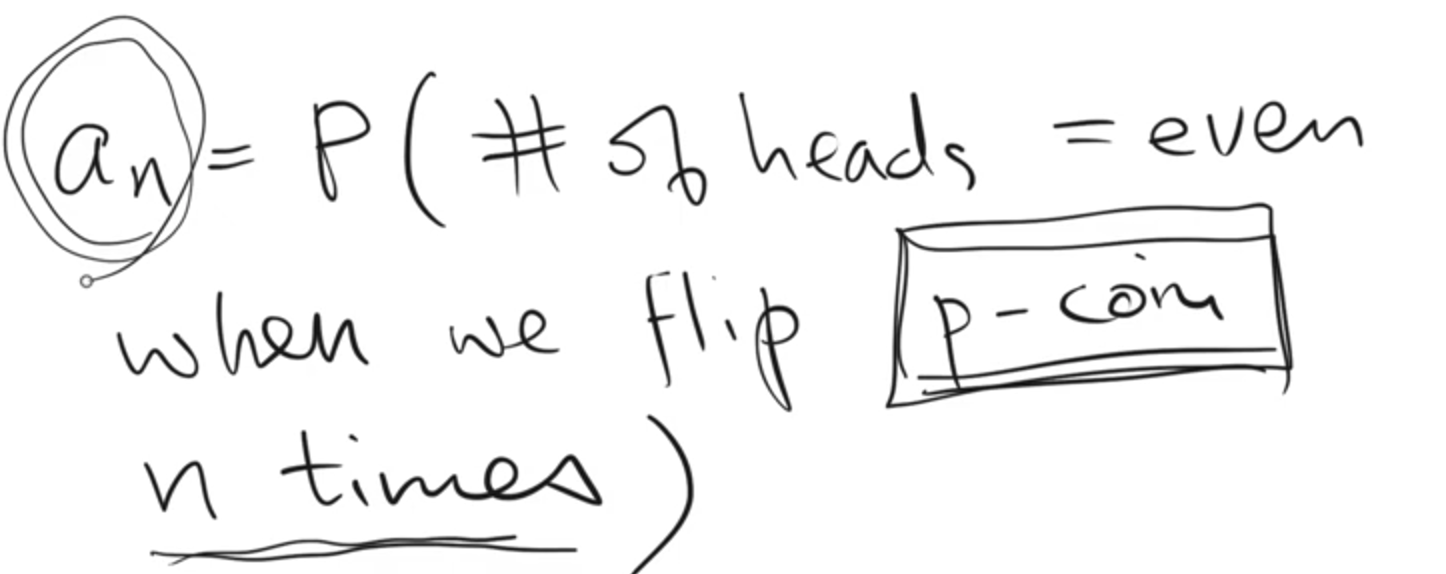 an = P( # of heads = even
when we flip p-coin
n times )